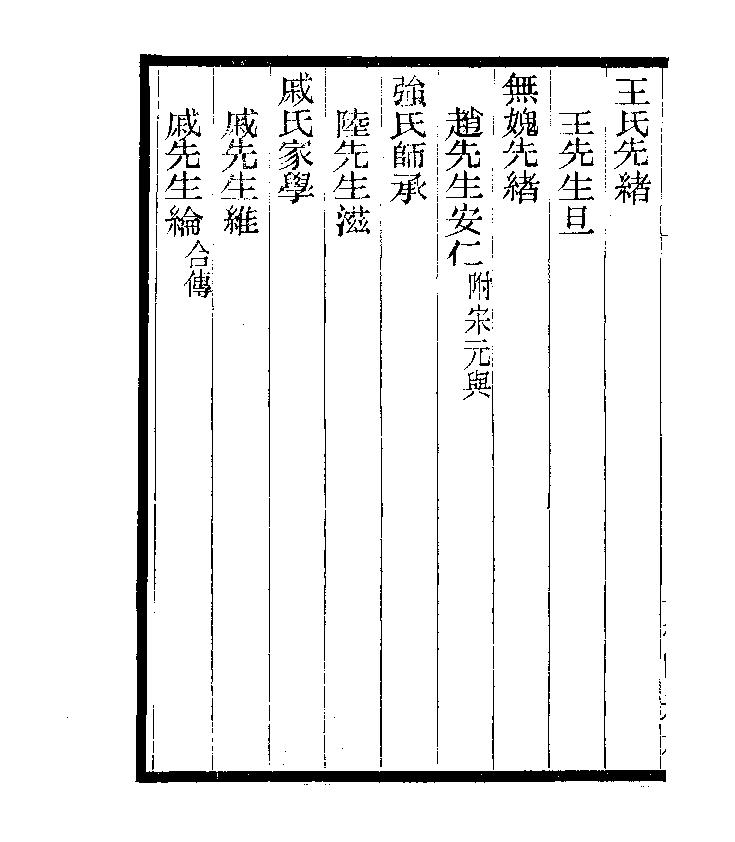 王氏先緒
王先生旦
無媿先緒
趙先生安仁附宋元與
強氏師承
陸先生滋
戚氏家學
戚先生維
戚先生綸合傳